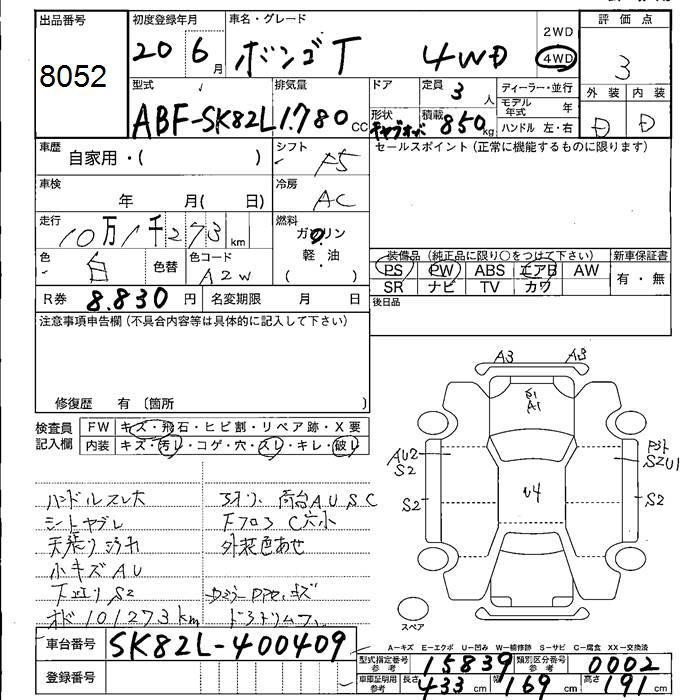 出品番号
8052
初度登録年月
20 6月
車名・グレード
ボンゴT 4WD
2WD
4WD
評価点
3
外装 内装
D D
型式
ABF-SK82L
排気量
1.780 cc
ドア
定員
3 人
形状
積載
850 kg
ディーラー・並行
モデル年式 年
ハンドル 左・右
車歴
自家用・( )
シフト
F5
セールスポイント(正常に機能するものに限ります)
車検
年 月( 日)
冷房
AC
走行
10万1千273 km
燃料
ガソリン
軽・油
( )
色
白
色替
色コード
A2W
装備品(純正品に限り○をつけて下さい)
PS PW ABS エアB AW
SR ナビ TV カワ
新車保証書
有・無
後日品
R券 8.830 円 名変期限 月 日
注意事項申告欄(不具合内容等は具体的に記入して下さい)
修復歴 有 〔箇所 〕
検査員記入欄
FW キズ・飛石・ヒビ割・リペア跡・X要
内装 キズ・汚レ・コゲ・穴・スレ・キレ・破レ
ハンドルスレ大
シートヤブレ
天張り汚れ
小キズAU
下廻りS2
オド101273km
荷台AUSC
FフロアC穴小
外装色あせ
A3 A3
A1
U4
AU2
S2
S2
S2U1
S2
スペア
車台番号 SK82L-400409
登録番号
A-キズ E-エクボ U-凹み W-補修跡 S-サビ C-腐食 XX-交換済
型式指定番号参考 15839 類別区分番号参考 0002
車庫証明用参考 長さ 433 cm 幅 169 cm 高さ 191 cm